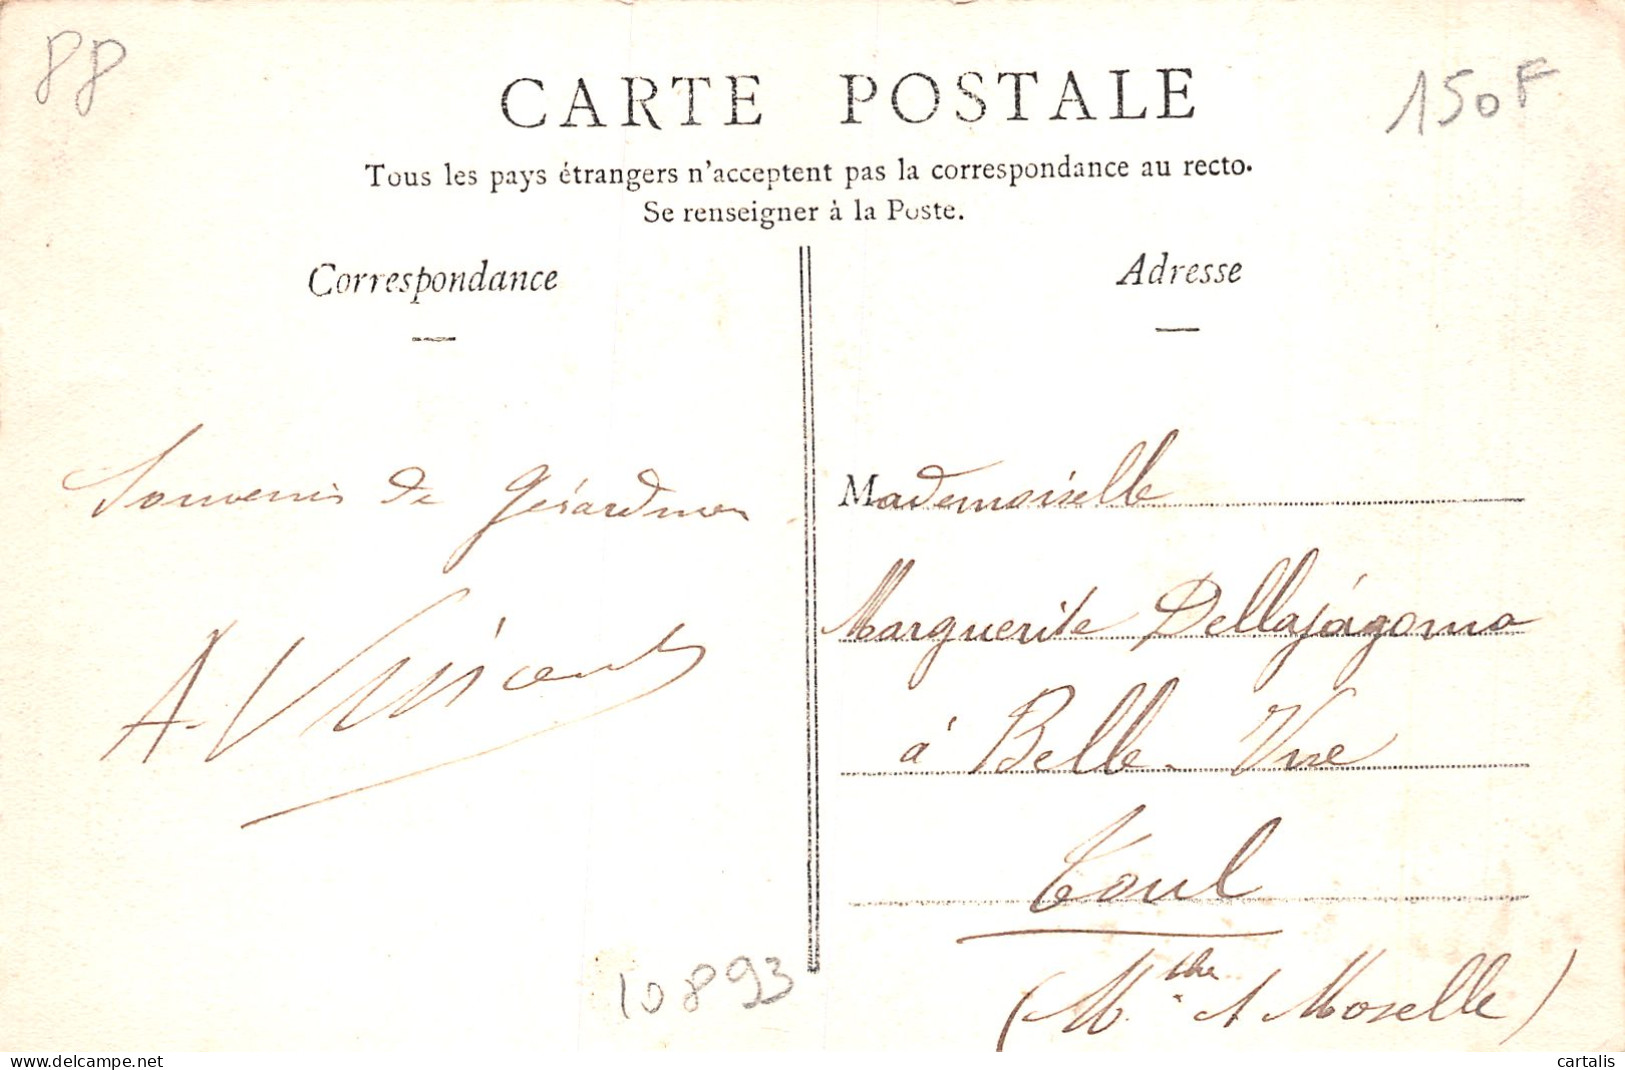 88
150F
CARTE POSTALE
Tous les pays étrangers n'acceptent pas la correspondance au recto.
Se renseigner à la Poste.
Correspondance
Souvenir de Gérardmer
A.
10893
Adresse
Mademoiselle
Marguerite
à Belle-Vue
Toul
(Mthe et Moselle)
delcampe.net
cartalis